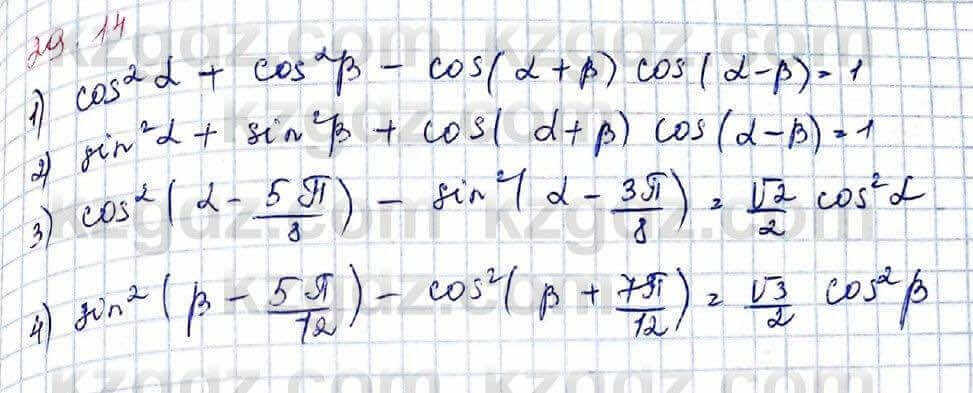 39.14
1) cos²α + cos²β - cos(α+β) cos(α-β) = 1
2) sin²α + sin²β + cos(α+β) cos(α-β) = 1
3) cos²(α - 5π/8) - sin²(α - 3π/8) = √2/2 cos²α
4) sin²(β - 5π/12) - cos²(β + 7π/12) = √3/2 cos²β
kzgdz.com
kzgdz.com
kzgdz.com
kzgdz.com